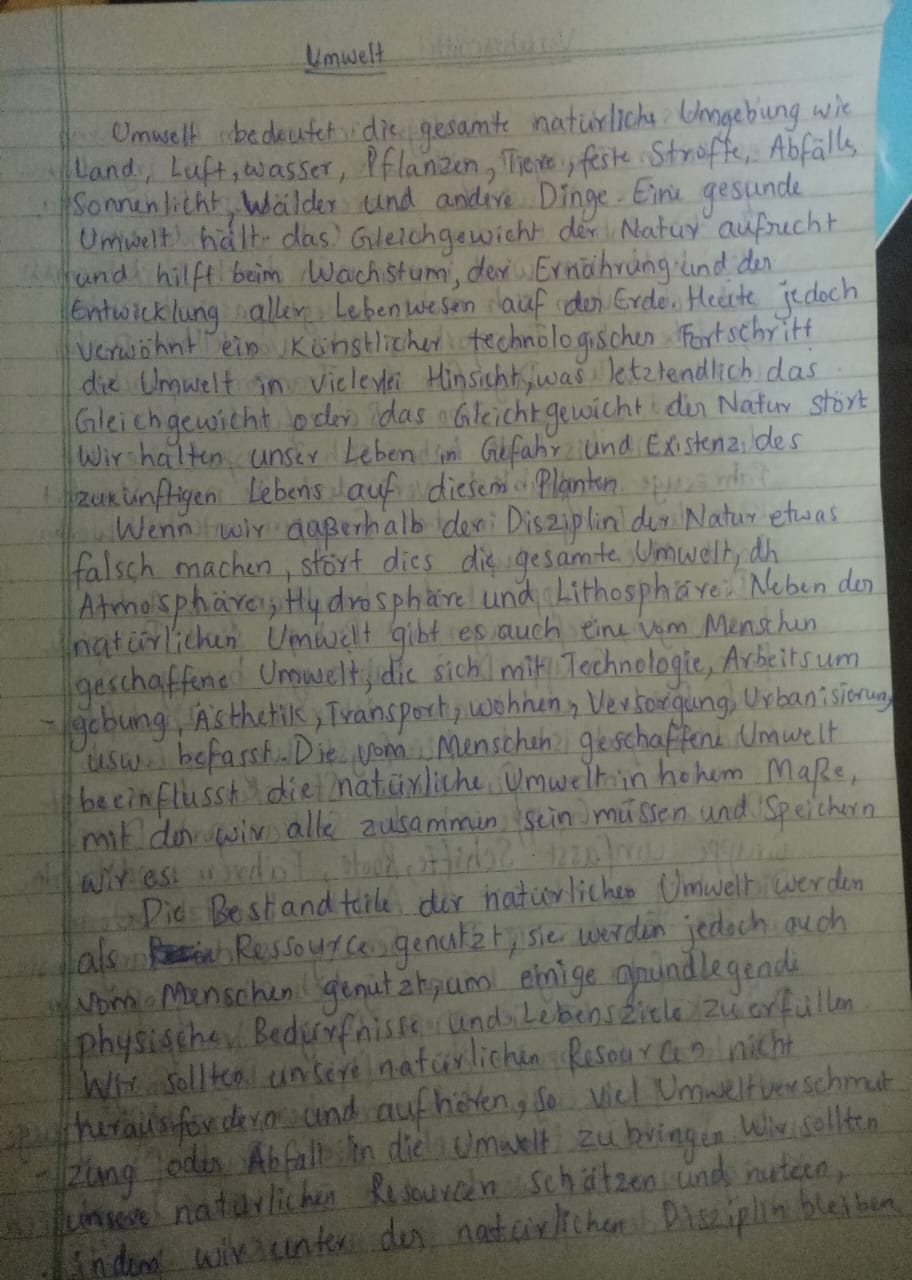 Umwelt
Umwelt bedeutet die gesamte natürliche Umgebung wie
Land, Luft, wasser, Pflanzen, Tiere, feste Stroffe, Abfälle,
Sonnenlicht, Wälder und andere Dinge. Eine gesunde
Umwelt hält das Gleichgewicht der Natur aufrecht
und hilft beim Wachstum, der Ernährung und der
Entwicklung aller Lebenwesen auf der Erde. Heute jedoch
verwöhnt ein künstlicher technologischer Fortschritt
die Umwelt in vielerlei Hinsicht, was letztendlich das
Gleichgewicht oder das Gleichtgewicht der Natur stört
Wir halten unser Leben in Gefahr und Existenz des
zukünftigen Lebens auf diesem Planten
Wenn wir daßerhalb der Disziplin der Natur etwas
falsch machen, stört dies die gesamte Umwelt, dh
Atmosphäre, Hydrosphäre und Lithosphäre. Neben der
natürlichen Umwelt gibt es auch eine vom Menschen
geschaffene Umwelt, die sich mit Technologie, Arbeitsum
- gebung, Ästhetik, Transport, wohnen, Versorgung, Urbanisierung
usw. befasst. Die vom Menschen geschaffene Umwelt
beeinflusst die natürliche Umwelt in hohem Maße,
mit der wir alle zusammen sein müssen und Speichern
wir es.
Die Bestandteile der natürlichen Umwelt werden
als Ressource genutzt, sie werden jedoch auch
vom Menschen genutzt, um einige grundlegende
physische Bedürfnisse und Lebensziele zu erfüllen
Wir sollten unsere natürlichen Resourcen nicht
herausfordern und aufhören, so viel Umweltverschmut
- zung oder Abfall in die Umwelt zu bringen Wir sollten
unsere natürlichen Resourcen schätzen und nutzen,
indem wir unter der natürlichen Disziplin bleiben